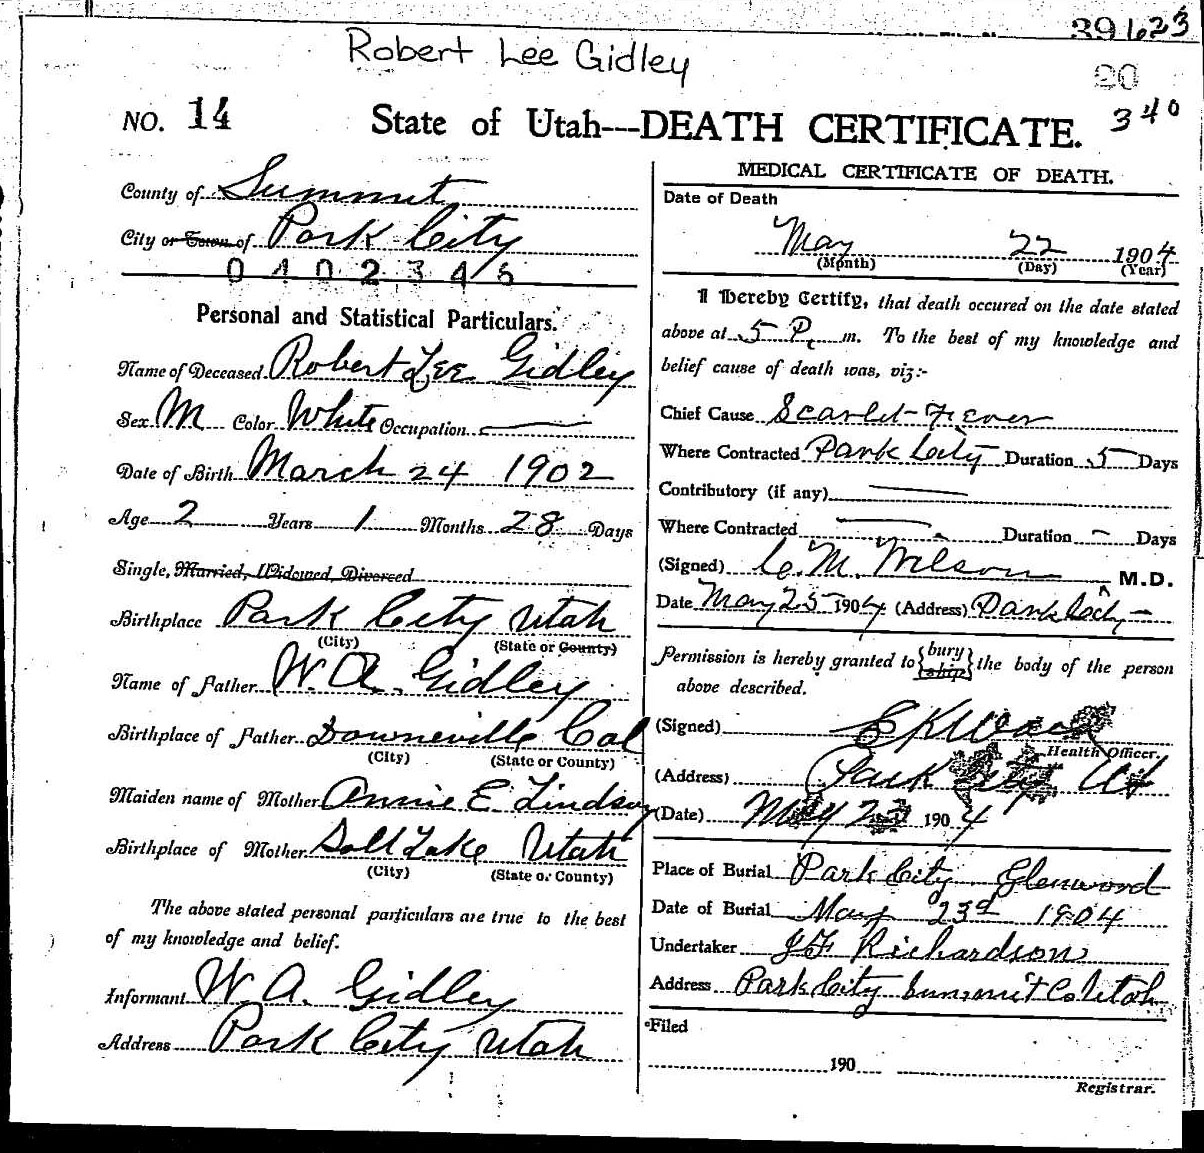 39623
Robert Lee Gidley
20
340
NO. 14
State of Utah---DEATH CERTIFICATE.
County of Summit
City or Town of Park City
0402346
Personal and Statistical Particulars.
Name of Deceased Robert Lee Gidley
Sex M Color White Occupation —
Date of Birth March 24 1902
Age 2 Years 1 Months 28 Days
Single, Married, Widowed, Divorced
Birthplace Park City Utah
(City) (State or County)
Name of Father W. A. Gidley
Birthplace of Father Downeville Cal
(City) (State or County)
Maiden name of Mother Annie E. Lindsay
Birthplace of Mother Salt Lake Utah
(City) (State or County)
The above stated personal particulars are true to the best
of my knowledge and belief.
Informant W. A. Gidley
Address Park City Utah
MEDICAL CERTIFICATE OF DEATH.
Date of Death
May 22 1904
(Month) (Day) (Year)
I Hereby Certify, that death occured on the date stated
above at 5 P. m. To the best of my knowledge and
belief cause of death was, viz:-
Chief Cause Scarlet-Fever
Where Contracted Park City Duration 5 Days
Contributory (if any) —
Where Contracted — Duration – Days
(Signed) C. M. Wilson M.D.
Date May 25 1904 (Address) Park City –
Permission is hereby granted to {bury
ship} the body of the person
above described.
(Signed) E K
Health Officer.
(Address) Park City Ut
(Date) May 23 1904
Place of Burial Park City Glenwood
Date of Burial May 23d 1904
Undertaker J F Richardson
Address Park City Summit Co Utah
Filed
190
Registrar.